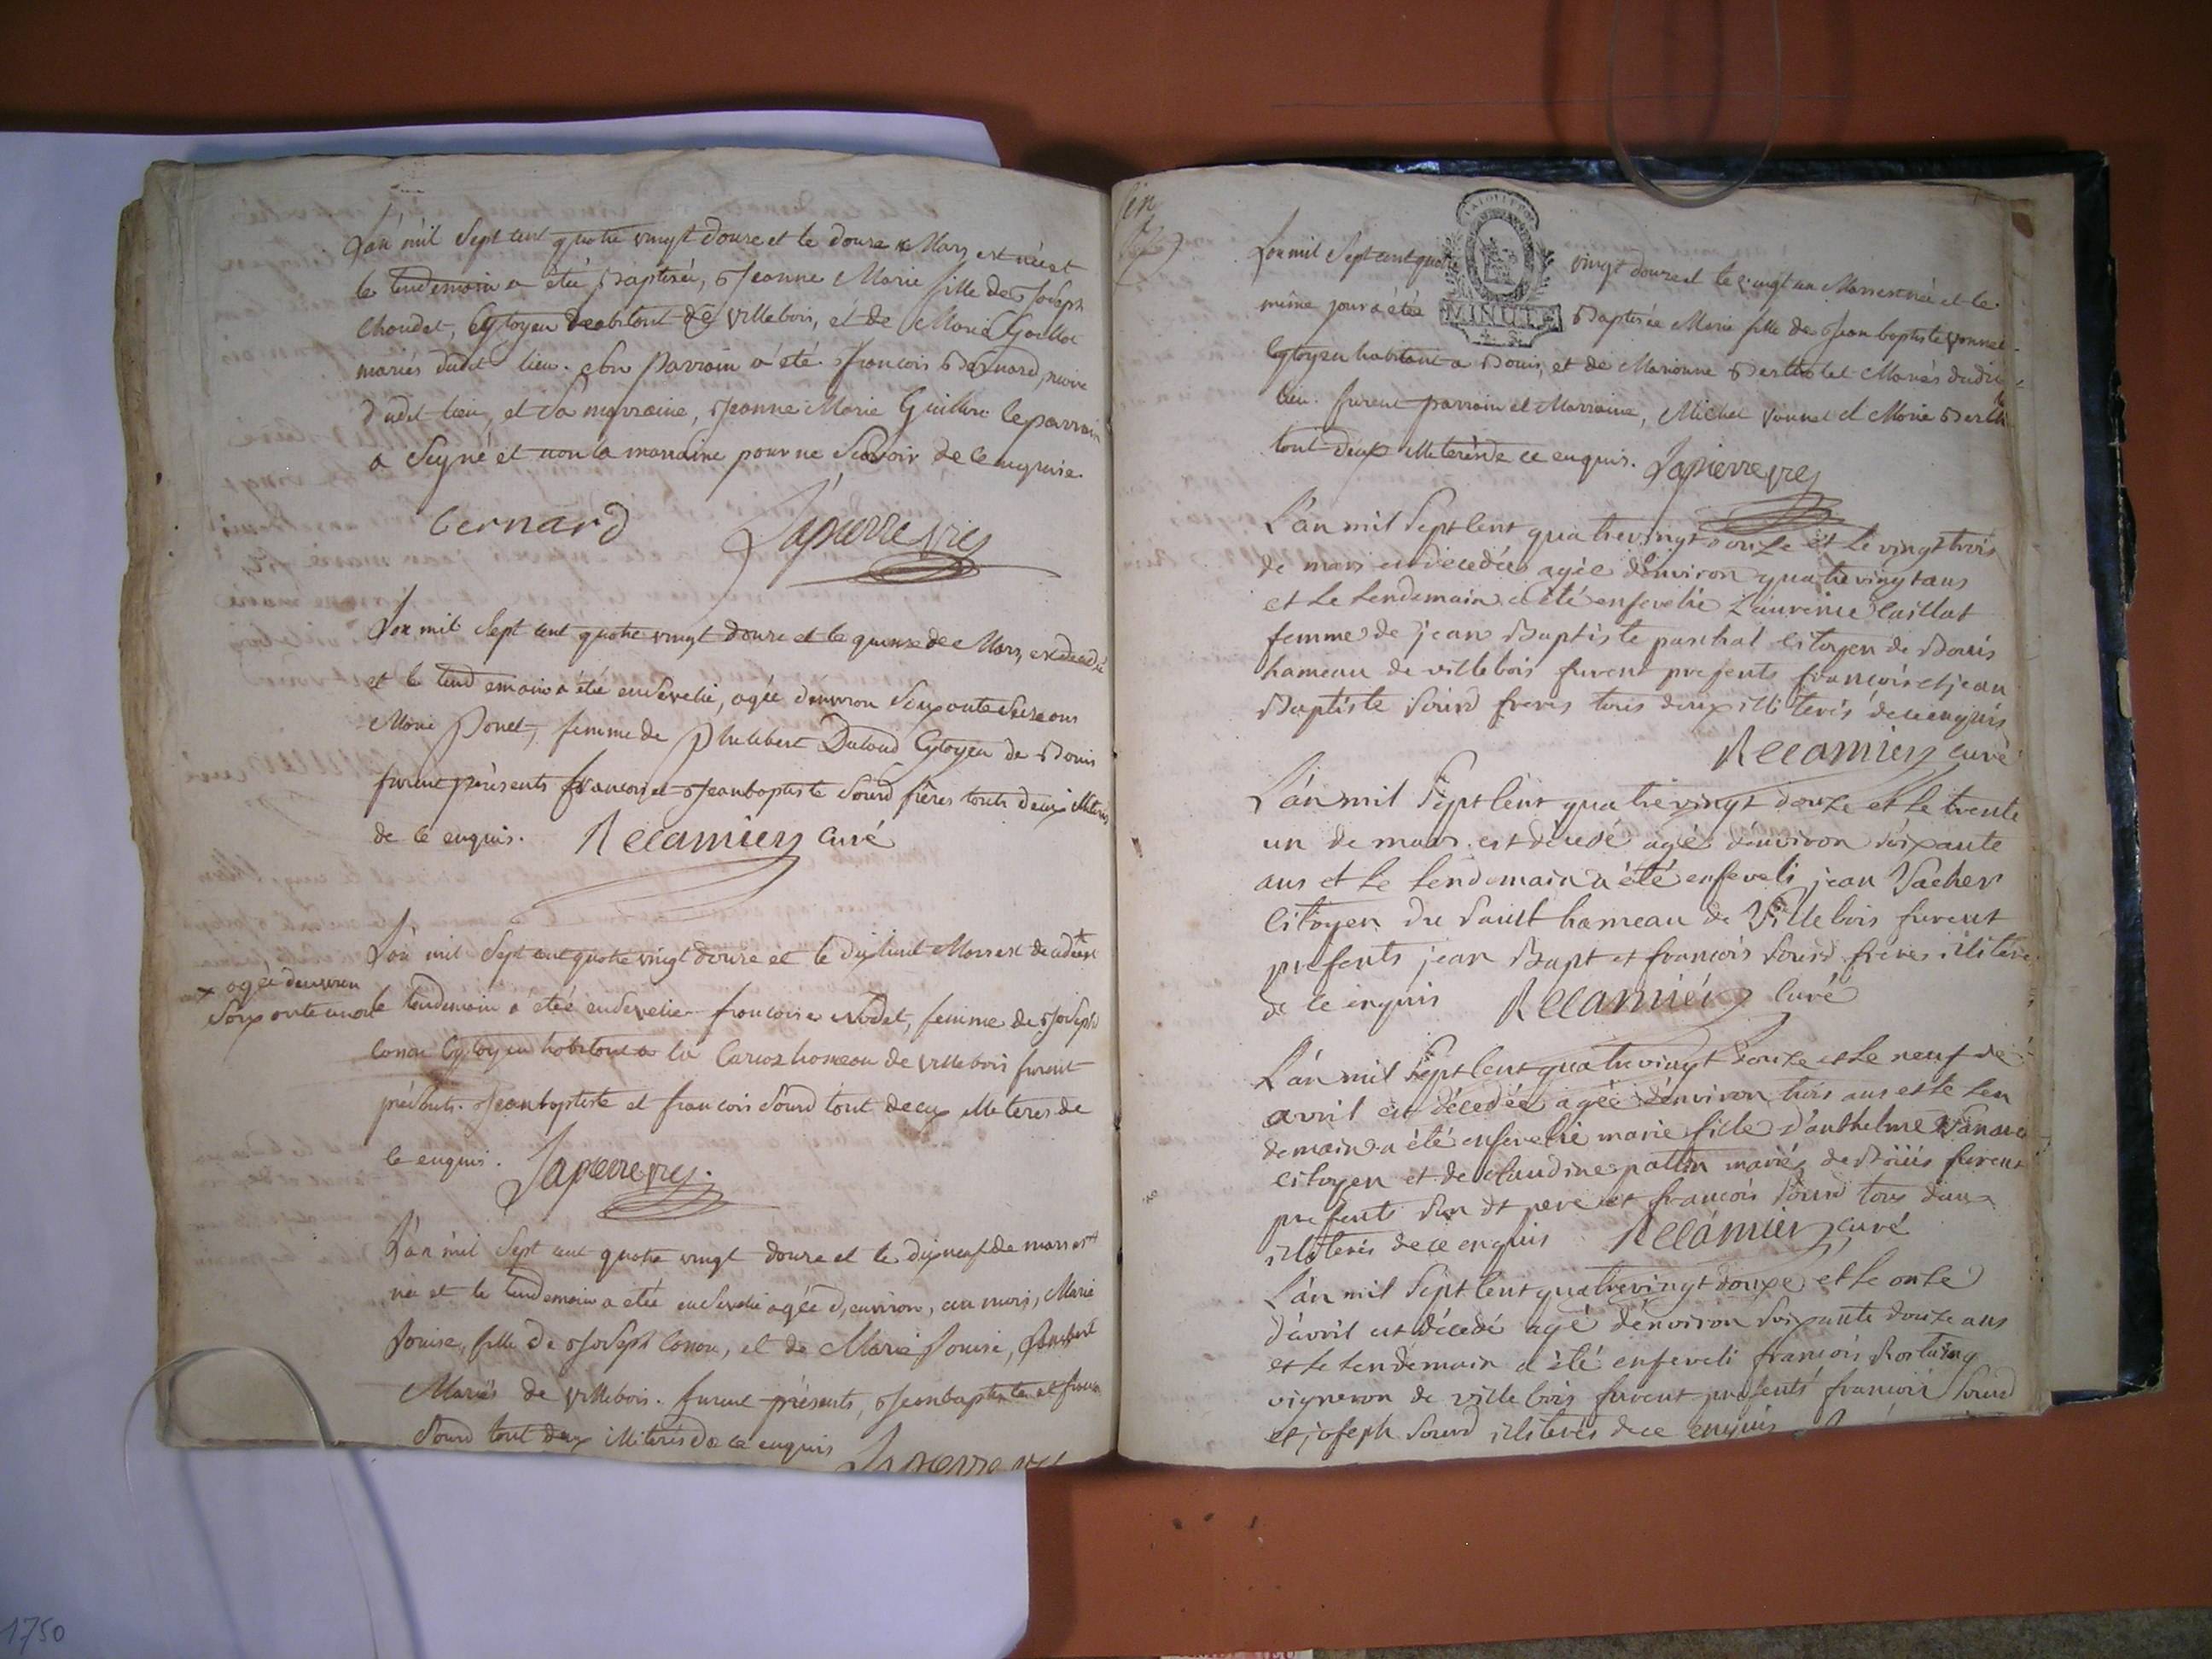 L'an mil Sept cent quatre vingt douze et le douze de Mars est née et
le lendemain a été Baptisée, Jeanne Marie fille de Joseph
Choudet, Cytoyen habitant de villebois, et de Marie
mariés dudit lieu. son Parrain a été françois Bernard, maire
dudit lieu, et Sa marraine, Jeanne Marie le parrain
a Signé et non la marraine pour ne Scavoir de ce enquise.
bernard Lapierre vic
L'an mil Sept cent quatre vingt douze et le quinze de Mars, est decedée
et le lendemain a été ensevelie, agée d'environ Soixante Seize ans
Marie Ponet, femme de Philibert Cytoyen de Bouis
furent présents francois et Jeanbaptiste Sourd frères touts deux illiterés
de ce enquis. Récamier Curé
L'an mil Sept cent quatre vingt douze et le dix huit Mars est decedée+ et
+ agée denviron
Soixante un an
le lendemain a été ensevelie francoise Nodet, femme de Joseph
Conou Cytoyen habitant a la hameau de villebois furent
présents. Jeanbaptiste et francois Sourd tout deux illiterés de
ce enquis. Lapierre vic.
L'an mil Sept cent quatre vingt douze et le dix neuf de mars est
née et le lendemain a été ensevelie agée d'environ, un mois, Marie
Louise, fille de Joseph Conou, et de Marie Louise,
Mariés de villebois. furent présents, Jeanbaptiste et
Sourd tout deux illiterés de ce enquis Lapierre vic
L'an mil Sept cent quatre vingt douze et le vingt un Mars est née et le
même jour a été Baptisée Marie fille de Jean baptiste vonnet
MINUTE
Cytoyen habitant a Bouis, et de Marianne Berthelet Mariés dudit
lieu. furent parrain et Marraine, Michel vonnet et Marie
tout deux illiterés de ce enquis. Lapierre vic
L'an mil Sept Cent quatre vingt douze et le vingt trois
de mars est decedée agée d'environ quatre vingt ans
et le lendemain a été ensevelie Laurence Caillat
femme de jean Baptiste paschal Citoyen de Bouis
hameau de villebois furent presents françois et jean
Baptiste Sourd freres tous deux illiterés de ce enquis
Récamier curé
L'an mil Sept Cent quatre vingt douze et le trente
un de mars est decedé agé d'environ soixante
ans et le lendemain a été enseveli jean Vacher
Citoyen du Sault hameau de Villebois furent
presents jean Bapt et françois Sourd freres illiterés
de ce enquis Récamier Curé
L'an mil Sept Cent quatre vingt douze et le neuf de
avril est décedée agée d'environ trois ans et le len
demain a été ensevelie marie fille d'anthelme
citoyen et de Claudine mariés de Boüis furent
presents son dt pere et françois Sourd tous deux
illiterés de ce enquis Récamier curé
L'an mil Sept Cent quatre vingt douze et le onze
d'avril est décedé agé d'environ soixante douze ans
et le lendemain a été enseveli françois Rostaing
vigneron de villebois furent presents françois Sourd
et joseph Sourd illiterés de ce enquis
1750